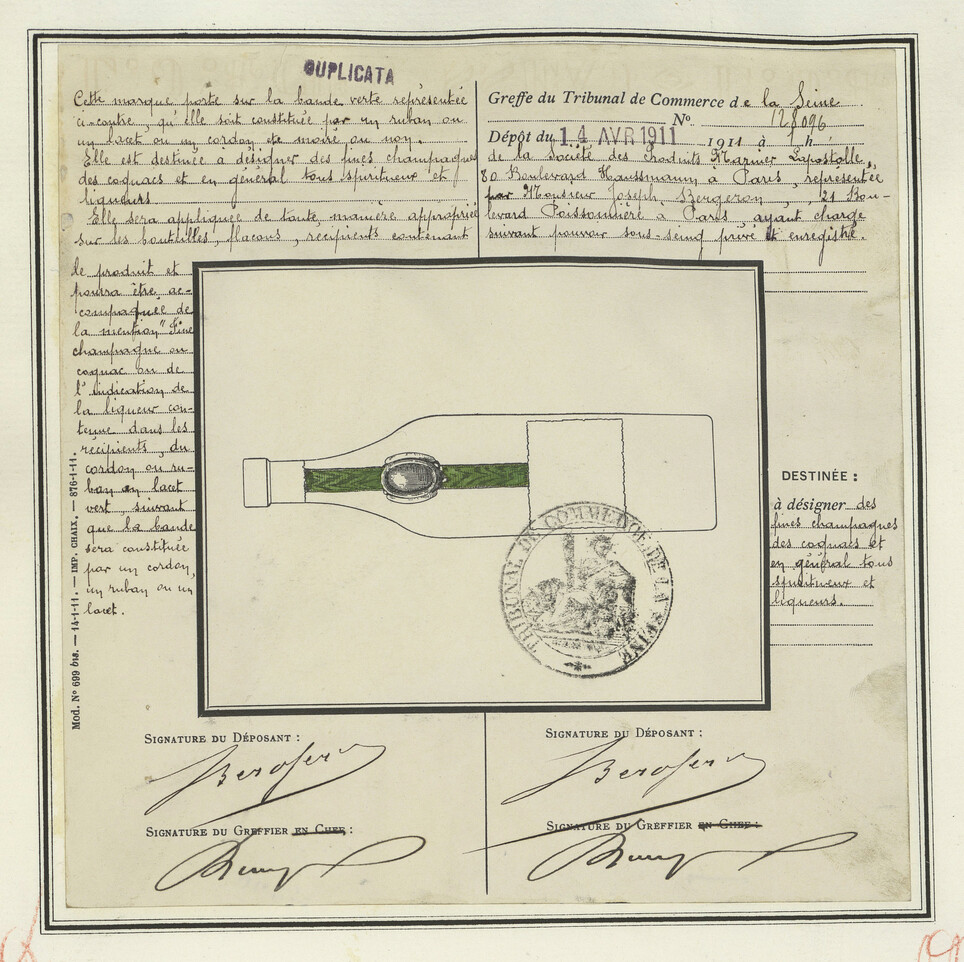 DUPLICATA
Cette marque porte sur la bande verte représentée
ci-contre, qu'elle soit constituée par un ruban ou
un lacet ou un cordon de moire ou non.
Elle est destinée à désigner des fines champagnes
des cognacs et en général tous spiritueux et
liqueurs.
Elle sera appliquée de toute manière appropriée
sur les bouteilles, flacons, récipients contenant
le produit et
pourra être ac-
compagnée de
la mention "Fine
champagne ou
cognac ou de
l'indication de
la liqueur con-
tenue dans les
récipients, du
cordon ou ru-
ban ou lacet
vert, suivant
que la bande
sera constituée
par un cordon,
un ruban ou un
lacet.
Greffe du Tribunal de Commerce de la Seine
No 128096
Dépôt du 14 AVR 1911 1911 à 1 h
de la Société des Produits Marnier Lapostolle,
80 Boulevard Haussmann à Paris, représentée
par Monsieur Joseph Bergeron, 21 Bou-
levard Poissonnière à Paris ayant charge
suivant pouvoir sous-seing privé et enregistré.
DESTINÉE :
à désigner des
fines champagnes
des cognacs et
en général tous
spiritueux et
liqueurs.
TRIBUNAL DE COMMERCE DE LA SEINE
Mod. No 699 bis. — 14-1-11. — IMP. CHAIX. — 876-1-11.
SIGNATURE DU DÉPOSANT :
SIGNATURE DU GREFFIER EN CHEF :
SIGNATURE DU DÉPOSANT :
SIGNATURE DU GREFFIER EN CHEF :